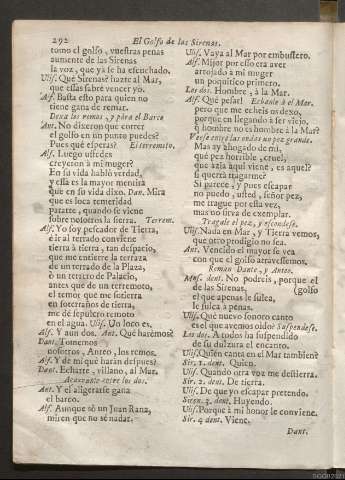 292
El Golfo de las Sirenas.
tomo el golfo, vuestras penas
aumente de las Sirenas
la voz, que ya se ha escuchado.
Ulis. Què Sirenas? hazte al Mar,
que essas sabrè vencer yo.
Alf. Basta esto para quien no
tiene gana de remar.
Dexa los remos, y pàra el Barco
Ant. No dixeron que correr
el golfo en un punto puedes?
Pues què esperas? El terremoto.
Alf. Luego ustedes
creyeron à mi muger?
En su vida hablò verdad,
y essa es la mayor mentira
que en su vida dixo. Dan. Mira
que es loca temeridad
pararte, quando se viene
sobre nosotros la sierra. Terrem.
Alf. Yo soy pescador de Tierra,
è ir al terrado conviene
tierra à tierra, tan despacio,
que me entierre la terraza
de un terrado de la Plaza,
ò un terrero de Palacio,
antes que de un terremoto,
el temor que me sotierra
en soterraños de sierra,
me dè sepulcro remoto
en el agua. Ulis. Un loco es.
Alf. Y aun dos. Ant. Què harèmos?
Dant. Tomemos
nosotros, Anteo, los remos.
Alf. Y de mi què haràn despues?
Dant. Echarte, villano, al Mar.
Acarrante entre los dos.
Ant. Y el aligerarse gana
el barco.
Alf. Aunque sò un Juan Rana,
miren que no sè nadar.
Ulis. Vaya al Mar por embustero.
Alf. Mijor por esso era aver
arrojado à mi muger
un poquitico primero.
Los dos. Hombre, à la Mar.
Alf. Què pesar! Echanle à el Mar.
pero que me echeis os dexo,
porque en llegando à ser viejo,
què hombre no es hombre à la Mar?
Veese entre las ondas un pez grande.
Mas ay ahogado de mi,
què pez horrible, cruel,
que azia aqui viene, es aquel?
si querrà tragarme?
Si parece, y pues escapar
no puedo, usted, señor pez,
me trague por esta vez,
mas no sirva de exemplar.
Tragale el pez, y escondese.
Ulis. Nada en Mar, y Tierra vemos,
que otro prodigio no sea.
Ant. Vencido el mayor se vea
con que el golfo atravessemos.
Reman Dante, y Anteo.
Mus. dent. No podreis, porque el
de las Sirenas, (golfo
el que apenas le sulca,
le sulca à penas.
Ulis. Què nuevo sonoro canto
es el que avemos oido? Suspendese.
Los dos. A todos ha suspendido
de su dulzura el encanto.
Ulis. Quièn canta en el Mar tambien?
Sir. 1. dent. Quien.
Ulis. Quando otra voz me destierra.
Sir. 2. dent. De tierra.
Ulis. De que yo escapar pretendo.
Siren. 3. dent. Huyendo.
Ulis. Porque à mi honor le conviene.
Sir. 4. dent. Viene.
Dant.